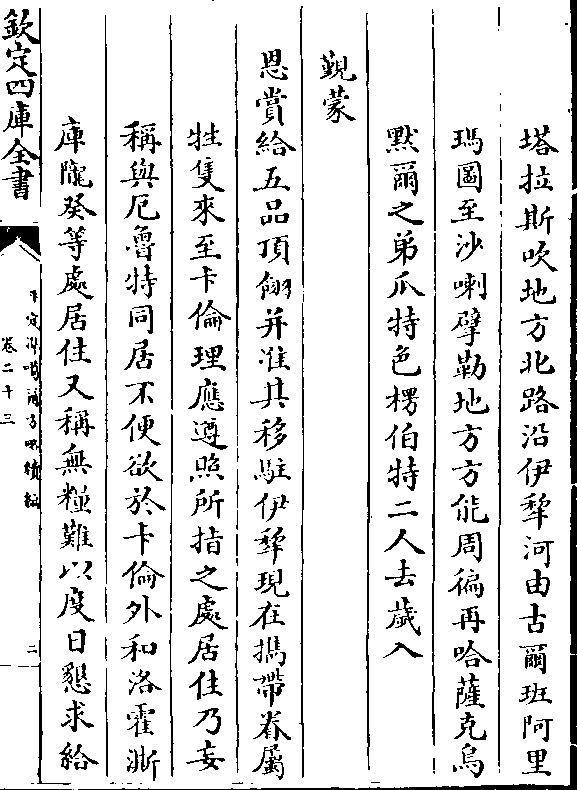 塔拉斯吹地方北路沿伊犂河由古爾班阿里
瑪圖至沙喇擘勒地方方能周徧再哈薩克烏
默爾之弟爪特色楞伯特二人去歲入
覲蒙
恩賞給五品頂翎并准其移駐伊犂現在攜帶眷屬
牲隻來至卡倫理應遵照所指之處居住乃妄
稱與厄魯特同居不便欲於卡倫外和洛霍澌
庫隴癸等處居住又稱無糧難以度日懇求給
欽定四庫全書
平定準噶爾方略續編
卷二十三
二